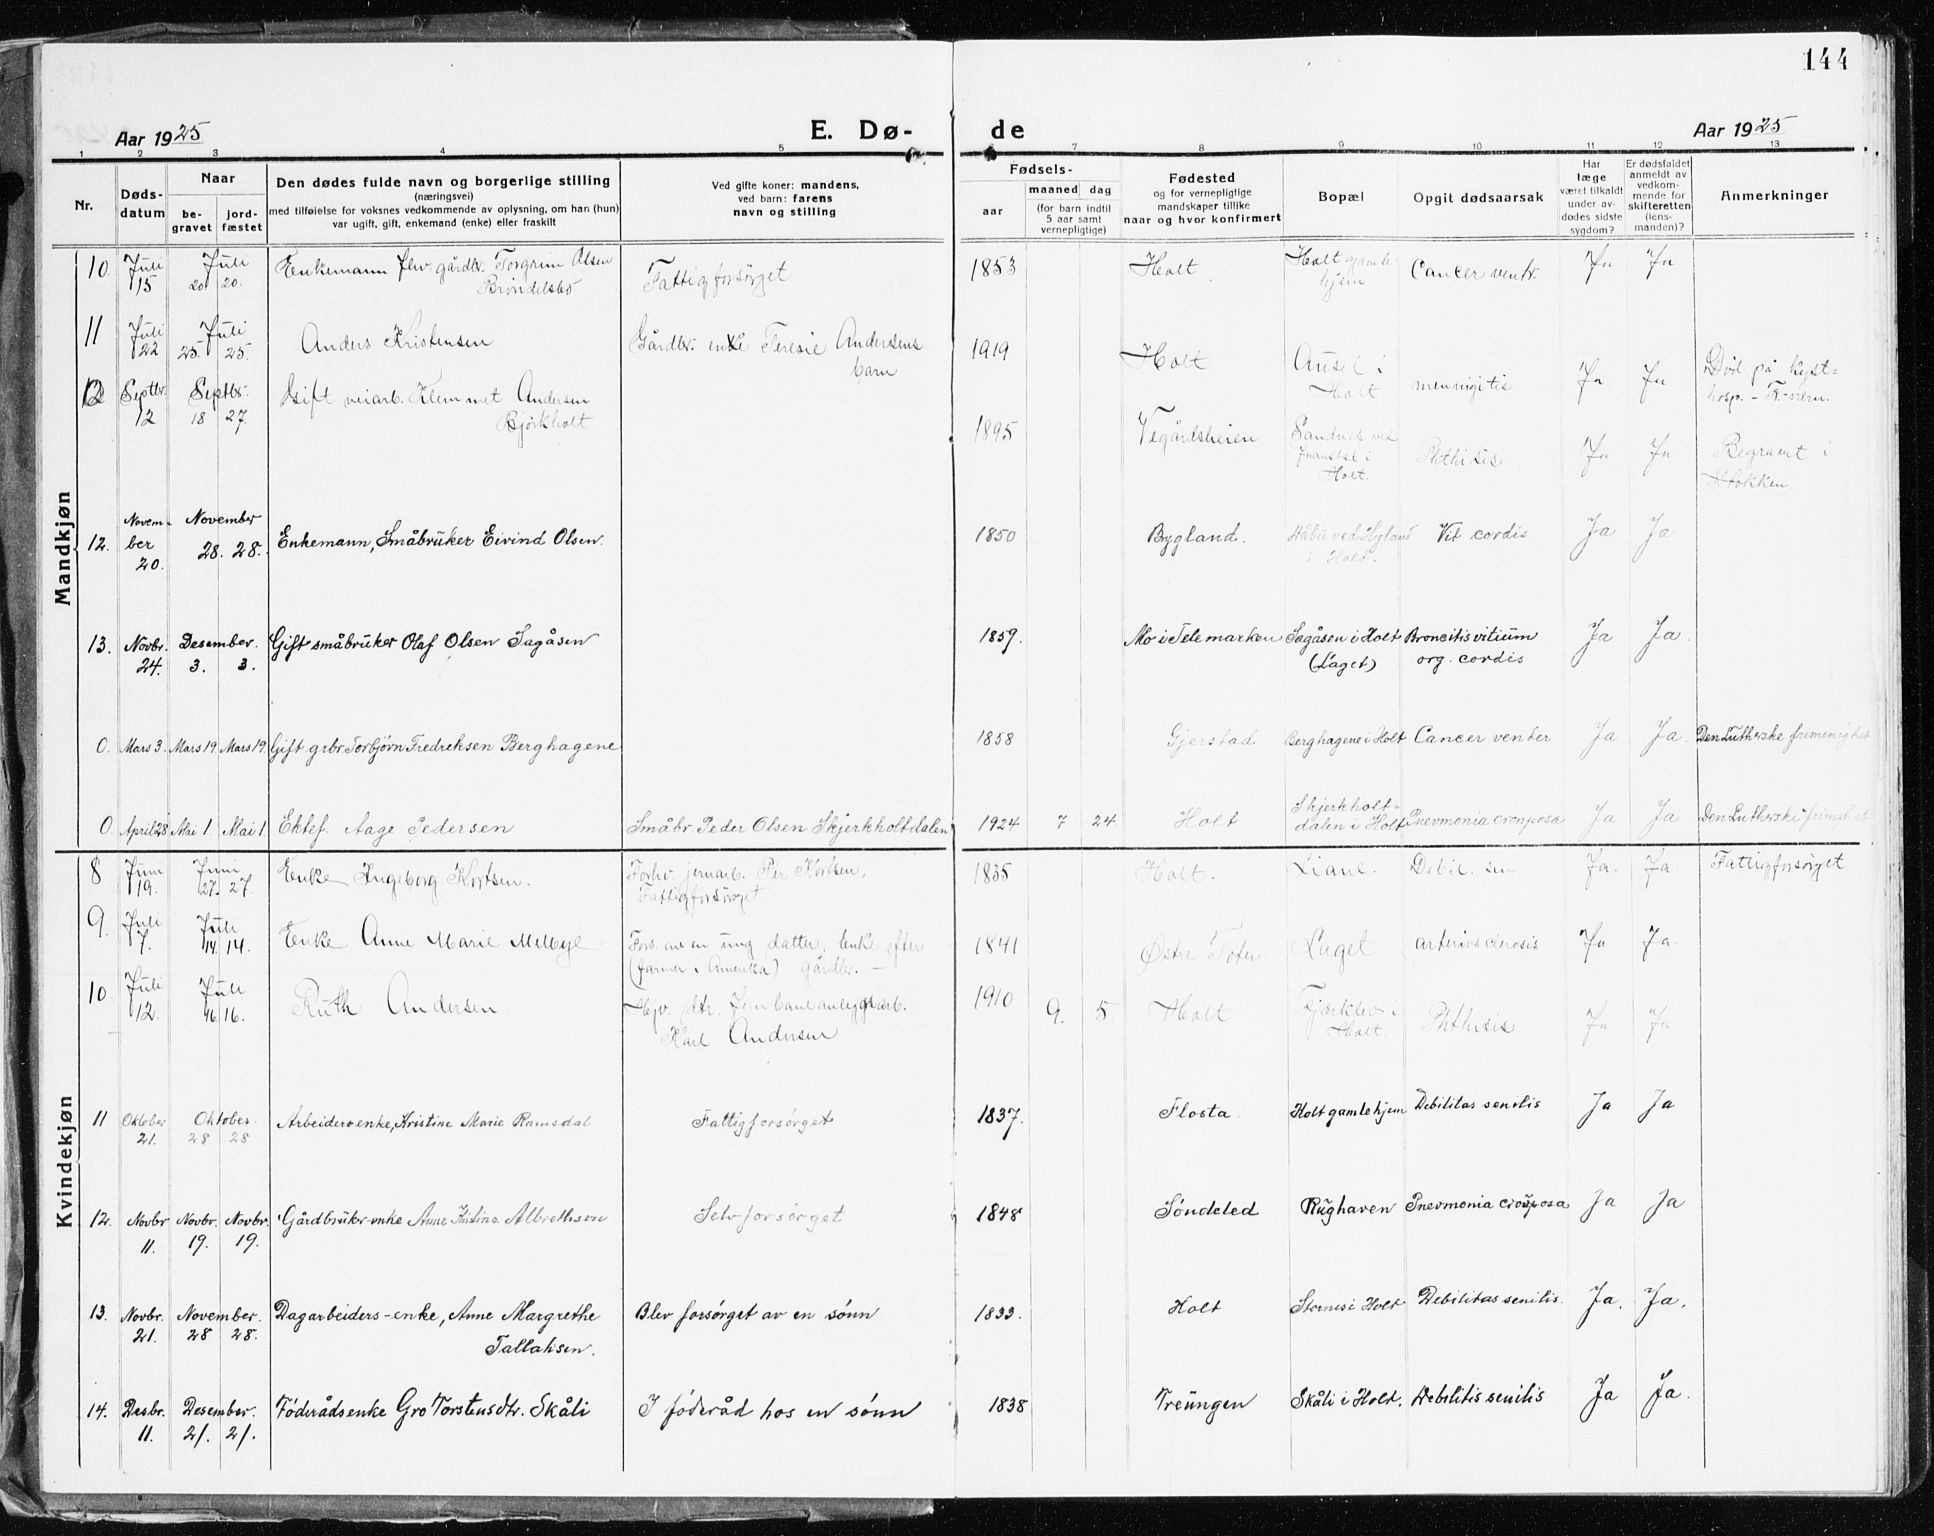 144
Aar 1925
E. Dø-
de
Aar 1925
1 2 3 4 5 7 8 9 10 11 12 13
Nr.
Døds-
datum
Naar
be-
gravet
jord-
fæstet
Den dødes fulde navn og borgerlige stilling
(næringsvei)
med tilføielse for voksnes vedkommende av oplysning, om han (hun)
var ugift, gift, enkemand (enke) eller fraskilt
Ved gifte koner: mandens,
ved barn: farens
navn og stilling
Fødsels-
aar
maaned
dag
(for barn indtil
5 aar samt
vernepligtige)
Fødested
og for vernepligtige
mandskaper tillike
naar og hvor konfirmert
Bopæl
Opgit dødsaarsak
Har
læge
været tilkaldt
under av-
dødes sidste
sygdom?
Er dødsfaldet
anmeldt av
vedkom-
mende for
skifteretten
(lens-
manden)?
Anmerkninger
Mandkjøn
10. Juli Juli Enkemann fhv. gårdbr. Torgrim Olsen Fattigforsørget 1853 Holt Holt gamle Cancer ventr. Ja Ja
15 20. 20. Brøndelsbo hjem
11 Juli Juli Anders Kristensen Gårdbr. enke Teresie Andersens 1919 Holt Ausel i mennigitis Ja Ja Død på kyst-
22 25. 25. barn Holt hosp.
12 Septbr. Septbr. Gift veiarb. Klemmet Andersen 1895 Vegårdsheien Sandnes ved Phthisis Ja Ja Begravet i
12 18 27. Bjørkholt i Holt. Stokken
12. Novem- November Enkemann, Småbruker Eivind Olsen. 1850 Bygland. Vit cordis Ja Ja
ber 28. 28. i Holt.
20.
13. Novbr. Desember. Gift småbruker Olaf Olsen Sagåsen 1859. Mo i Telemarken Sagåsen i Holt Broncitis vitium Ja Ja.
24. 3. 3. (Laget) org. cordis
0. Mars 3. Mars 19. Mars 19. Gift grbr Torbjørn Fredriksen Berghagene 1858 Gjerstad Berghagene i Holt Cancer venter Ja Ja. Den Lutherske frimenighet
0. April 28 Mai 1. Mai 1. Ektef. Aage Pedersen Småbr Peder Olsen Skjerkholtdalen 1924 7 24 Holt Skjerkholt-
dalen i Holt Pnevmonia crouposa Ja Ja Den Lutherske
Kvindekjøn
8 Juni Juni Enke Ingeborg Kortsen. Forhv. jernarb. Per Kortsen, 1835 Holt. Liane. Debil. sen Ja. Ja. Fattigforsørget
19. 27. 27. Fattigforsørget
9. Juli Juli Enke Anne Marie Melbye Fors. av en ung datter, enke efter 1841 Østre Toten Laget arteriosclerosis Ja Ja.
7. 14. 14. (farmer i Amerika) gårdbr. –
10. Juli Juli Ruth Andersen. Hjv. dtr. Jernbaneanleggsarb. 1910 9. 5. Holt Fjærkleiv i Phthisis Ja Ja
12. 16. 16. Karl Andersen Holt.
11 Oktober Oktober. Arbeidersenke, Kristine Marie Ramsdal Fattigforsørget 1837. Flosta. Holt gamlehjem Debilitas senilis Ja Ja
21. 28 28
12. Novbr Novbr. Novbr. Gårdbruker-enke Anne Kristine Albrethsen Selvforsørget 1848 Søndeled Rughaven Pnevmonia crouposa Ja Ja
11. 19. 19.
13. Novbr. November. Dagarbeiders-enke, Anne Margrethe Blev forsørget av en sønn 1833. Holt Stornes i Holt Debilitas senilis. Ja. Ja.
21. 28 28. Tallaksen.
14. Desbr. Desember. Føderådsenke Gro Torstensdtr. Skåli I føderåd hos en sønn 1838 Treungen Skåli i Holt. Debilitis senilis Ja Ja.
11. 21. 21.